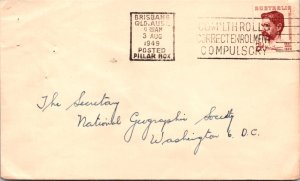 BRISBANE
QLD. AUST
3 AUG
1949
POSTED
PILLAR BOX
C'WLTH ROLLS
CORRECT ENROLMENT
COMPULSORY
AUSTRALIA
The Secretary
National Geographic Society
Washington D.C.